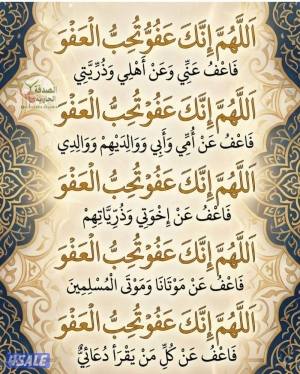 اَللَّهُمَّ إِنَّكَ عَفُوٌّ تُحِبُّ الْعَفْوَ
فَاعْفُ عَنِّي وَعَنْ أَهْلِي وَذُرِّيَّتِي
الصدقة
الجارية
اَللَّهُمَّ إِنَّكَ عَفُوٌّ تُحِبُّ الْعَفْوَ
فَاعْفُ عَنْ أُمِّي وَأَبِي وَوَالِدَيْهِمْ وَوَالِدِي
اَللَّهُمَّ إِنَّكَ عَفُوٌّ تُحِبُّ الْعَفْوَ
فَاعْفُ عَنْ إِخْوَتِي وَذُرِّيَّاتِهِمْ
اَللَّهُمَّ إِنَّكَ عَفُوٌّ تُحِبُّ الْعَفْوَ
فَاعْفُ عَنْ مَوْتَانَا وَمَوْتَى الْمُسْلِمِينَ
اَللَّهُمَّ إِنَّكَ عَفُوٌّ تُحِبُّ الْعَفْوَ
فَاعْفُ عَنْ كُلِّ مَنْ يَقْرَأُ دُعَائِيْ
4SALE